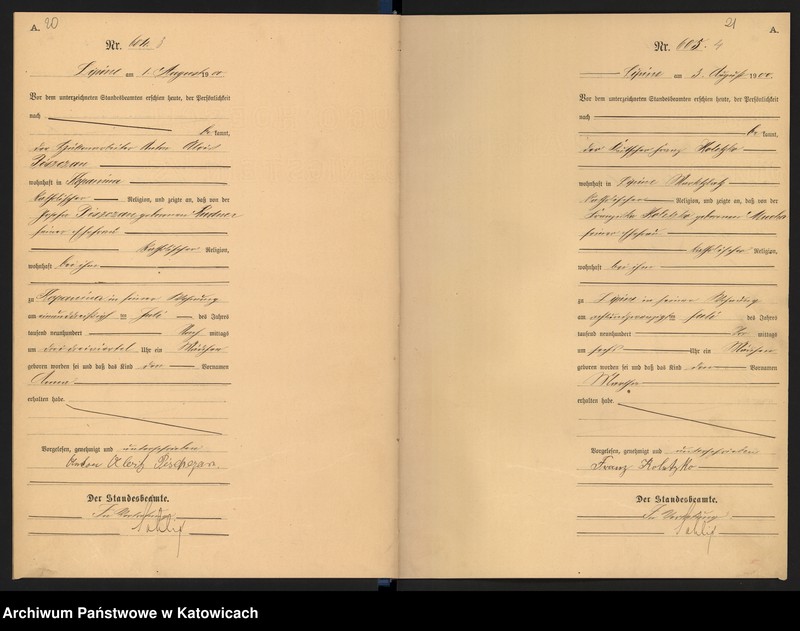 A. 20
Nr. 604. 3
Lipine am 1. August 1900
Vor dem unterzeichneten Standesbeamten erschien heute, der Persönlichkeit
nach
be kannt,
der Hüttenarbeiter Anton Alois
wohnhaft in Chropaczow
katholischer Religion, und zeigte an, daß von der
geborenen
seiner Ehefrau
katholischer Religion,
wohnhaft bei ihm
zu in seiner Wohnung
am einunddreißigsten Juli des Jahres
tausend neunhundert Nach mittags
um drei dreiviertel Uhr ein Mädchen
geboren worden sei und daß das Kind den Vornamen
Anna
erhalten habe.
Vorgelesen, genehmigt und unterschrieben
Anton
Der Standesbeamte.
In Vertretung
21 A.
Nr. 605. 4
Lipine am 3. August 1900.
Vor dem unterzeichneten Standesbeamten erschien heute, der Persönlichkeit
nach
be kannt,
der Kutscher Franz Kolotzko
wohnhaft in Lipine Marktplatz
katholischer Religion, und zeigte an, daß von der
Franziska geborenen
seiner Ehefrau
katholischer Religion,
wohnhaft bei ihm
zu Lipine in seiner Wohnung
am achtundzwanzigsten Juli des Jahres
tausend neunhundert Vor mittags
um sechs Uhr ein Mädchen
geboren worden sei und daß das Kind den Vornamen
Martha
erhalten habe.
Vorgelesen, genehmigt und unterschrieben
Franz Kolotzko
Der Standesbeamte.
In Vertretung
Archiwum Państwowe w Katowicach